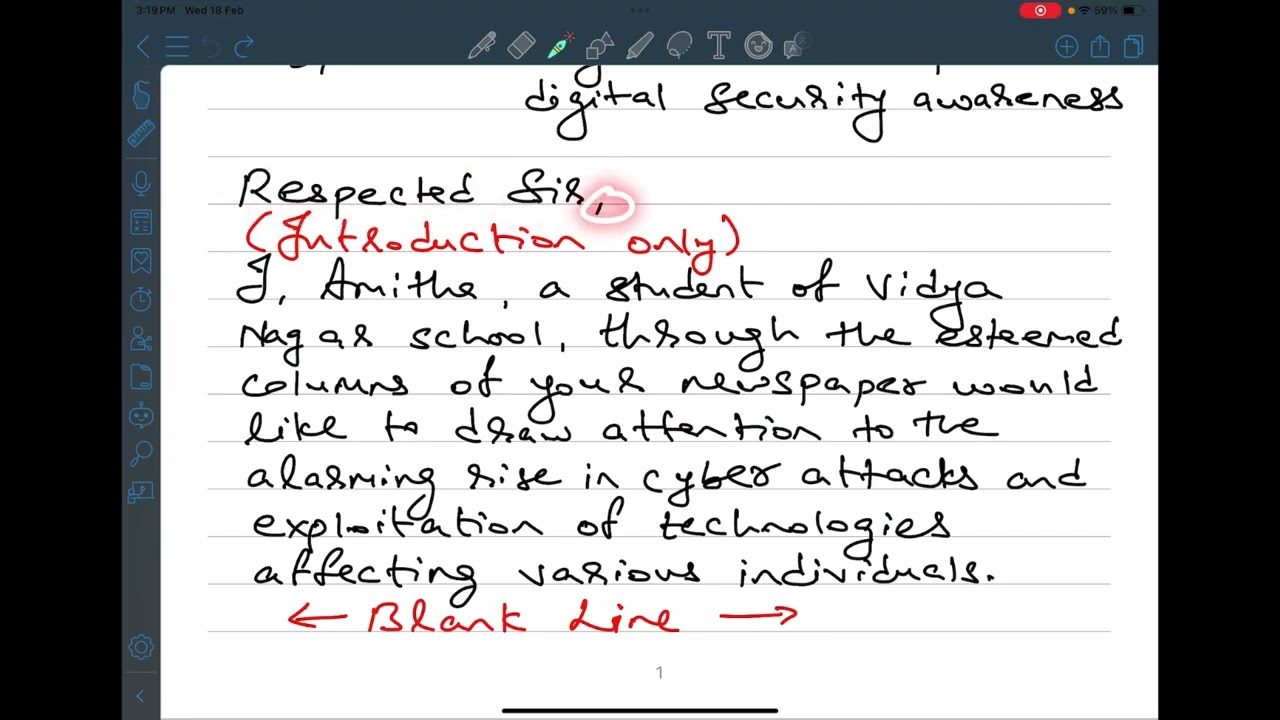 3:19 PM Wed 18 Feb
59%
digital security awareness
Respected Sir,
(Introduction only)
I, Amitha, a student of Vidya
Nagar school, through the esteemed
columns of your newspaper would
like to draw attention to the
alarming rise in cyber attacks and
exploitation of technologies
affecting various individuals.
← Blank Line →
1